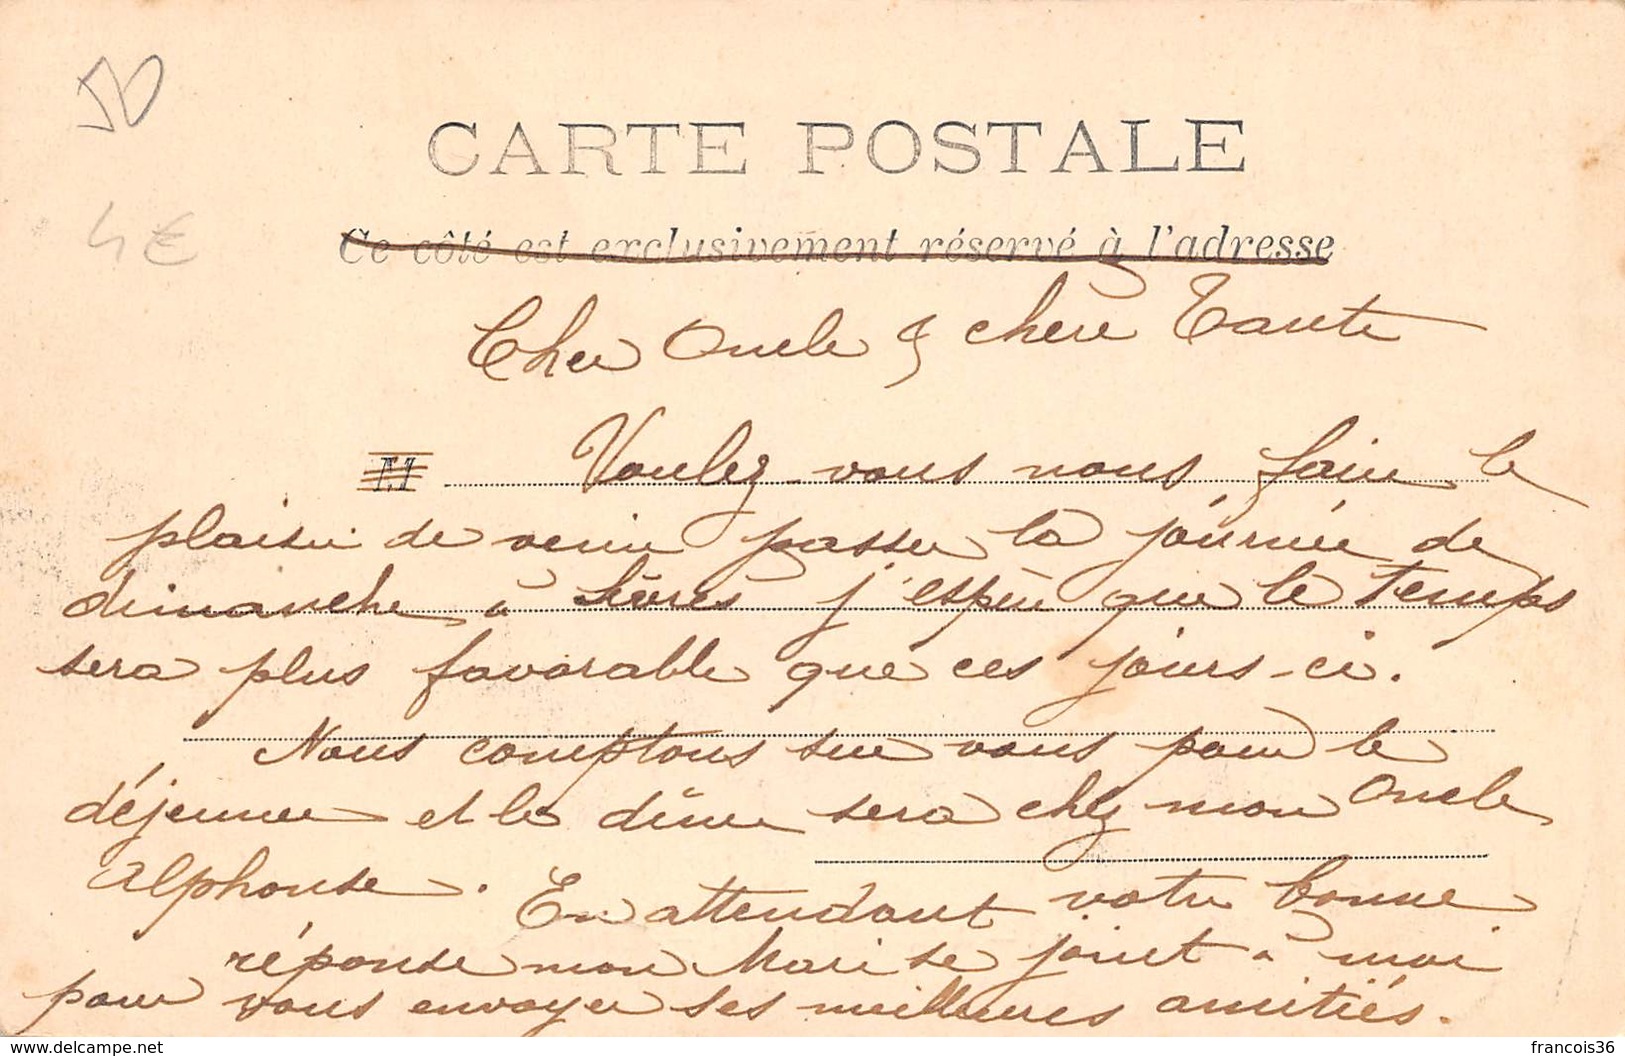 50
4€
CARTE POSTALE
Ce côté est exclusivement réservé à l'adresse
Cher Oncle & chère Tante
M Voulez-vous nous faire le
plaisir de venir passer la journée de
dimanche à Sèvres j'espère que le temps
sera plus favorable que ces jours-ci.
Nous comptons sur vous pour le
déjeuner et le dîner sera chez mon Oncle
Alphonse. En attendant votre bonne
réponse mon Mari se joint à moi
pour vous envoyer ses meilleures amitiés.
www.delcampe.net
francois36